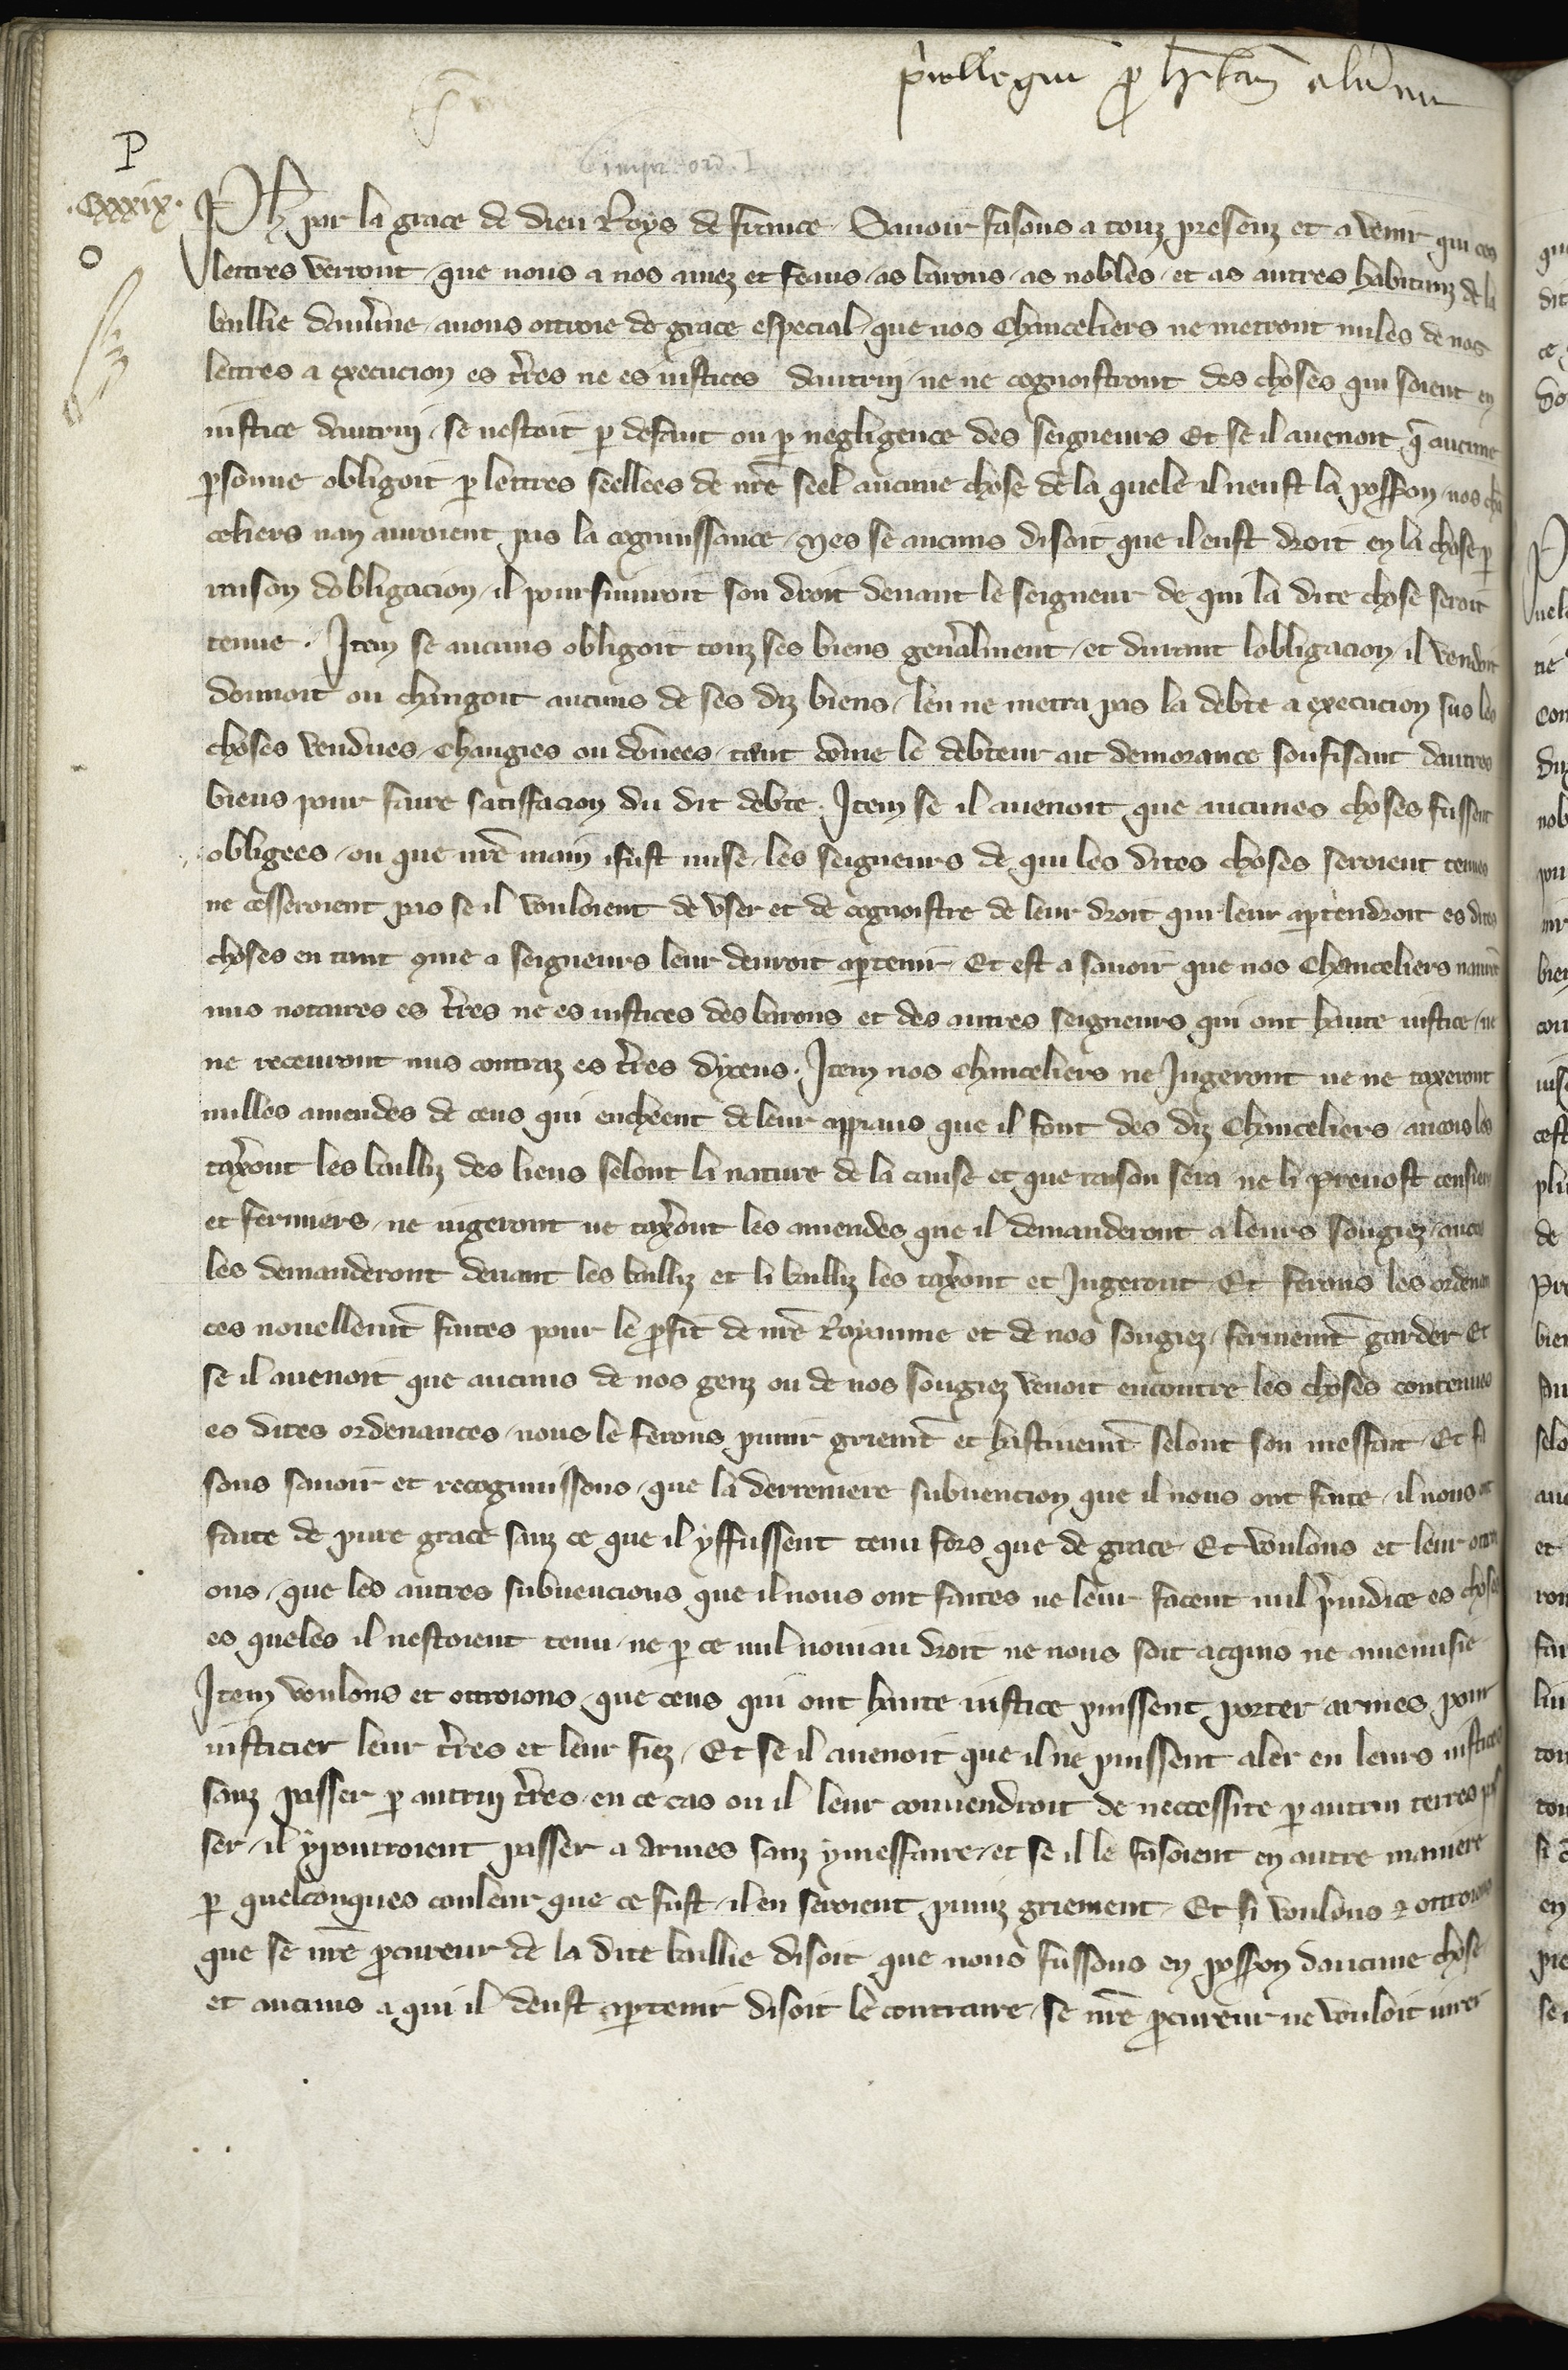 P
.Cxxxix.
Ph par la grace de dieu Roys de france. Sauoir fasons a touz presenz et a venir qui ces
lettres verront, que nous a nos amez et feaus, as barons, as nobles, et as autres habitanz de la
baillie dauuergne, auons ottroie de grace especial, que nos Chanceliers ne metront nules de nos
lettres a execucion es tr̃res ne es iustices dautruy, ne ne cognoistront des choses qui soient en
iustice dautruy, se nestoit p defaut ou p negligence des seigneurs Et se il auenoit q̃ aucune
psonne obligoit p lettres seellees de nr̃e seel aucune chose de la quele il neust la possion, nos chã
celiers nan auroient pas la cognoissance, Mes se aucuns disoit que il eust droit en la chose p
raison dobligacion, il poursuiuroit son droit deuant le seigneur de qui la dite chose seroit
tenue. Item se aucuns obligoit touz ses biens gen̾alment, et durant lobligacion il vendoit
donnoit ou changoit aucuns de ses diz biens, len ne metra pas la debte a execucion sus les
choses vendues, changies ou dõnees, tant cõme le debteur ait demorance soufisant dautres
biens pour faire satisfacion du dit debte. Item se il auenoit que aucunes choses fussent
obligees, ou que nr̃e main i fust mise, les seigneurs de qui les dites choses seroient tenues
ne cesseroient pas se il vouloient de vser et de cognoistre de leur droit qui leur aptendroit es dites
choses en tant cõme a seigneurs leur deuroit aptenir. Et est a sauoir que nos Chanceliers nauront
nus notaires es tr̃res ne es iustices des barons et des autres seigneurs qui ont haute iustice, ne
ne receuront nus contraz es tr̃res dyceus. Item nos chanceliers ne Jugeront ne ne taxeront
nulles amendes de ceus qui encheent de leur appiaus que il font des diz Chanceliers, ancois les
tax̾ont les bailliz des liens selont la nature de la cause et que raison sera ne li preuost censier
et fermiers, ne iugeront ne tax̾ont les amendes que il demanderont a leurs sougiez, ancois
les demanderont deuant les bailliz et li bailliz les tax̾ont et Jugeront. Et ferons les ordenan
ces nouellemt̃ faites pour le pfit de nr̃e Royaume et de nos sougiez, fermemt̃ garder Et
se il auenoit que aucuns de nos genz ou de nos sougiez venoit encontre les choses contenues
es dites ordenances, nous le ferons punir griemt̃ et hastiuemt̃ selont son meffait, Et fa
sons sauoir et recognoissons, que la derreniere subuencion que il nous ont faite, il nous ont
faite de pure grace sanz ce que il y fussent tenu fors que de grace. Et voulons et leur ottroi
ons, que les autres subuencions que il nous ont faites ne leur facent nul p̾iudice es choses
es queles il nestoient tenu, ne p ce nul nouiau droit ne nous soit acquis ne amenusie
Item voulons et ottroions, que ceus qui ont haute iustice puissent porter armes pour
iusticier leur tr̃res et leur fiez, Et se il auenoit que il ne puissent aler en leurs iustices
sanz passer p autruy tr̃res, en ce cas ou il leur conuendroit de neccessite p autrui terres pas
ser, il y pourroient passer a armes sanz y meffaire, et se il le fasoient en autre maniere
p quelconques couleur que ce fust, il en seroient puniz griement, Et si voulons ⁊ ottroions
que se nr̃e pcureur de la dite baillie disoit que nous fussons en possion daucune chose
et aucuns a qui il deust aptenir disoit le contraire, se nr̃e pcureur ne vouloit iurer